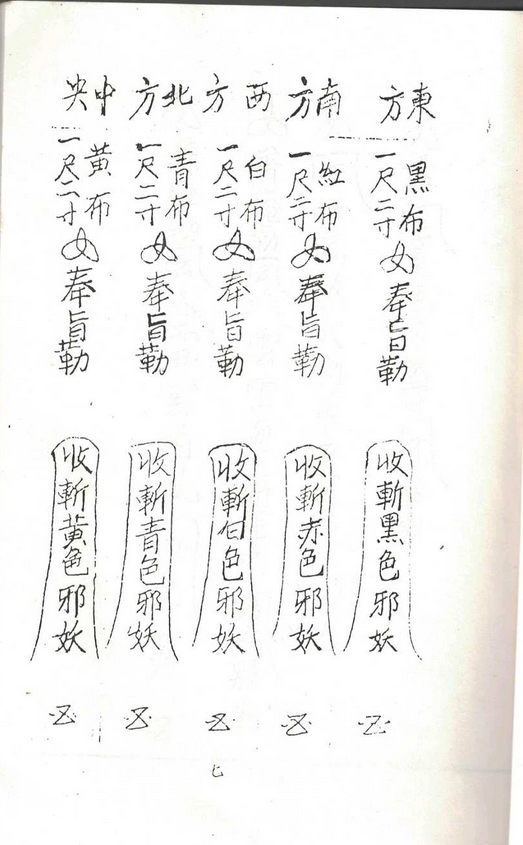 東方
黑布
一尺二寸
奉旨勒
收斬黑色邪妖
南方
紅布
一尺二寸
奉旨勒
收斬赤色邪妖
西方
白布
一尺二寸
奉旨勒
收斬白色邪妖
北方
青布
一尺二寸
奉旨勒
收斬青色邪妖
中央
黃布
一尺二寸
奉旨勒
收斬黃色邪妖
七